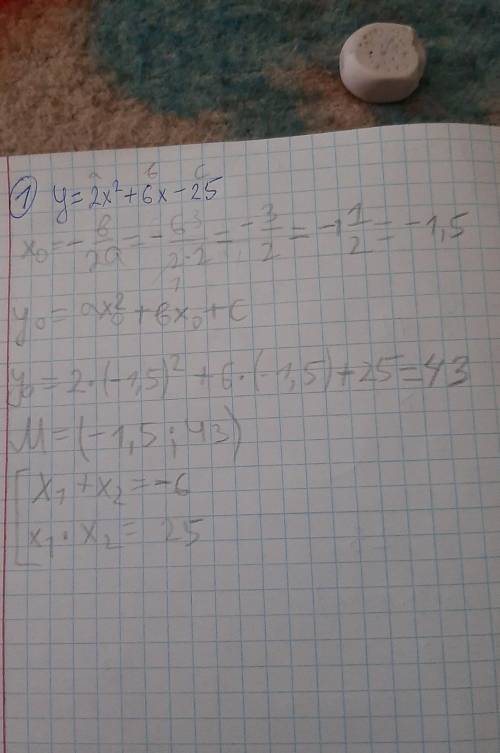 ① y=2x²+6x-25
a в c
x₀=-в/2a=-6³/2·2₁=-3/2=-1 1/2=-1,5
y₀=ax₀²+вx₀+c
y₀=2·(-1,5)²+6·(-1,5)+25=43
M=(-1,5;43)
[x₁+x₂=-6
x₁·x₂=25